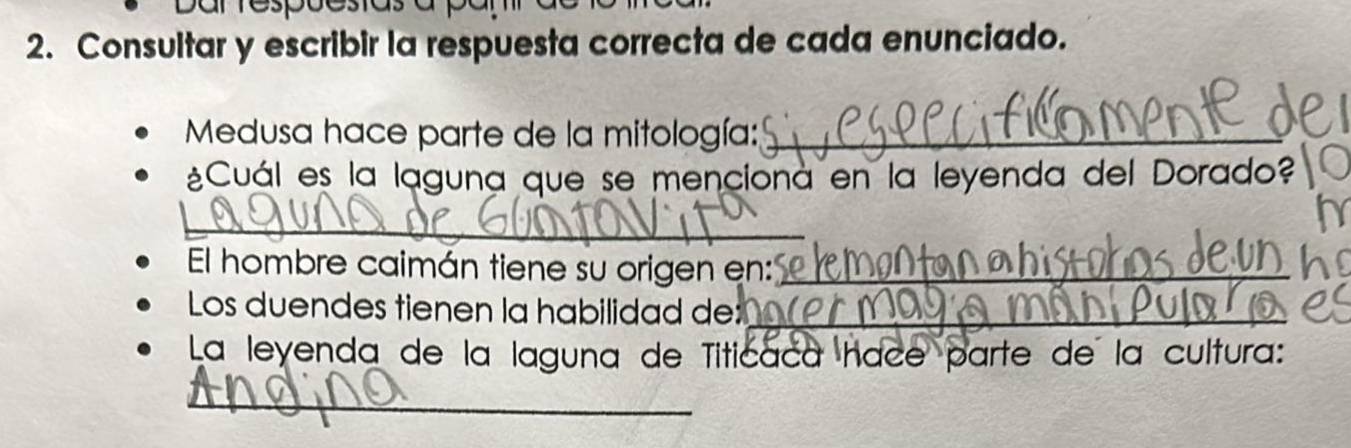 Dar respuestas a partir de lo irreal.
2. Consultar y escribir la respuesta correcta de cada enunciado.
• Medusa hace parte de la mitología: Si, especificamente de
• ¿Cuál es la laguna que se menciona en la leyenda del Dorado? lo
Laguna de Guatavita
• El hombre caimán tiene su origen en: se remontan a histotos de.un
• Los duendes tienen la habilidad de: hacer magia manipular
• La leyenda de la laguna de Titicaca hace parte de la cultura:
Andina